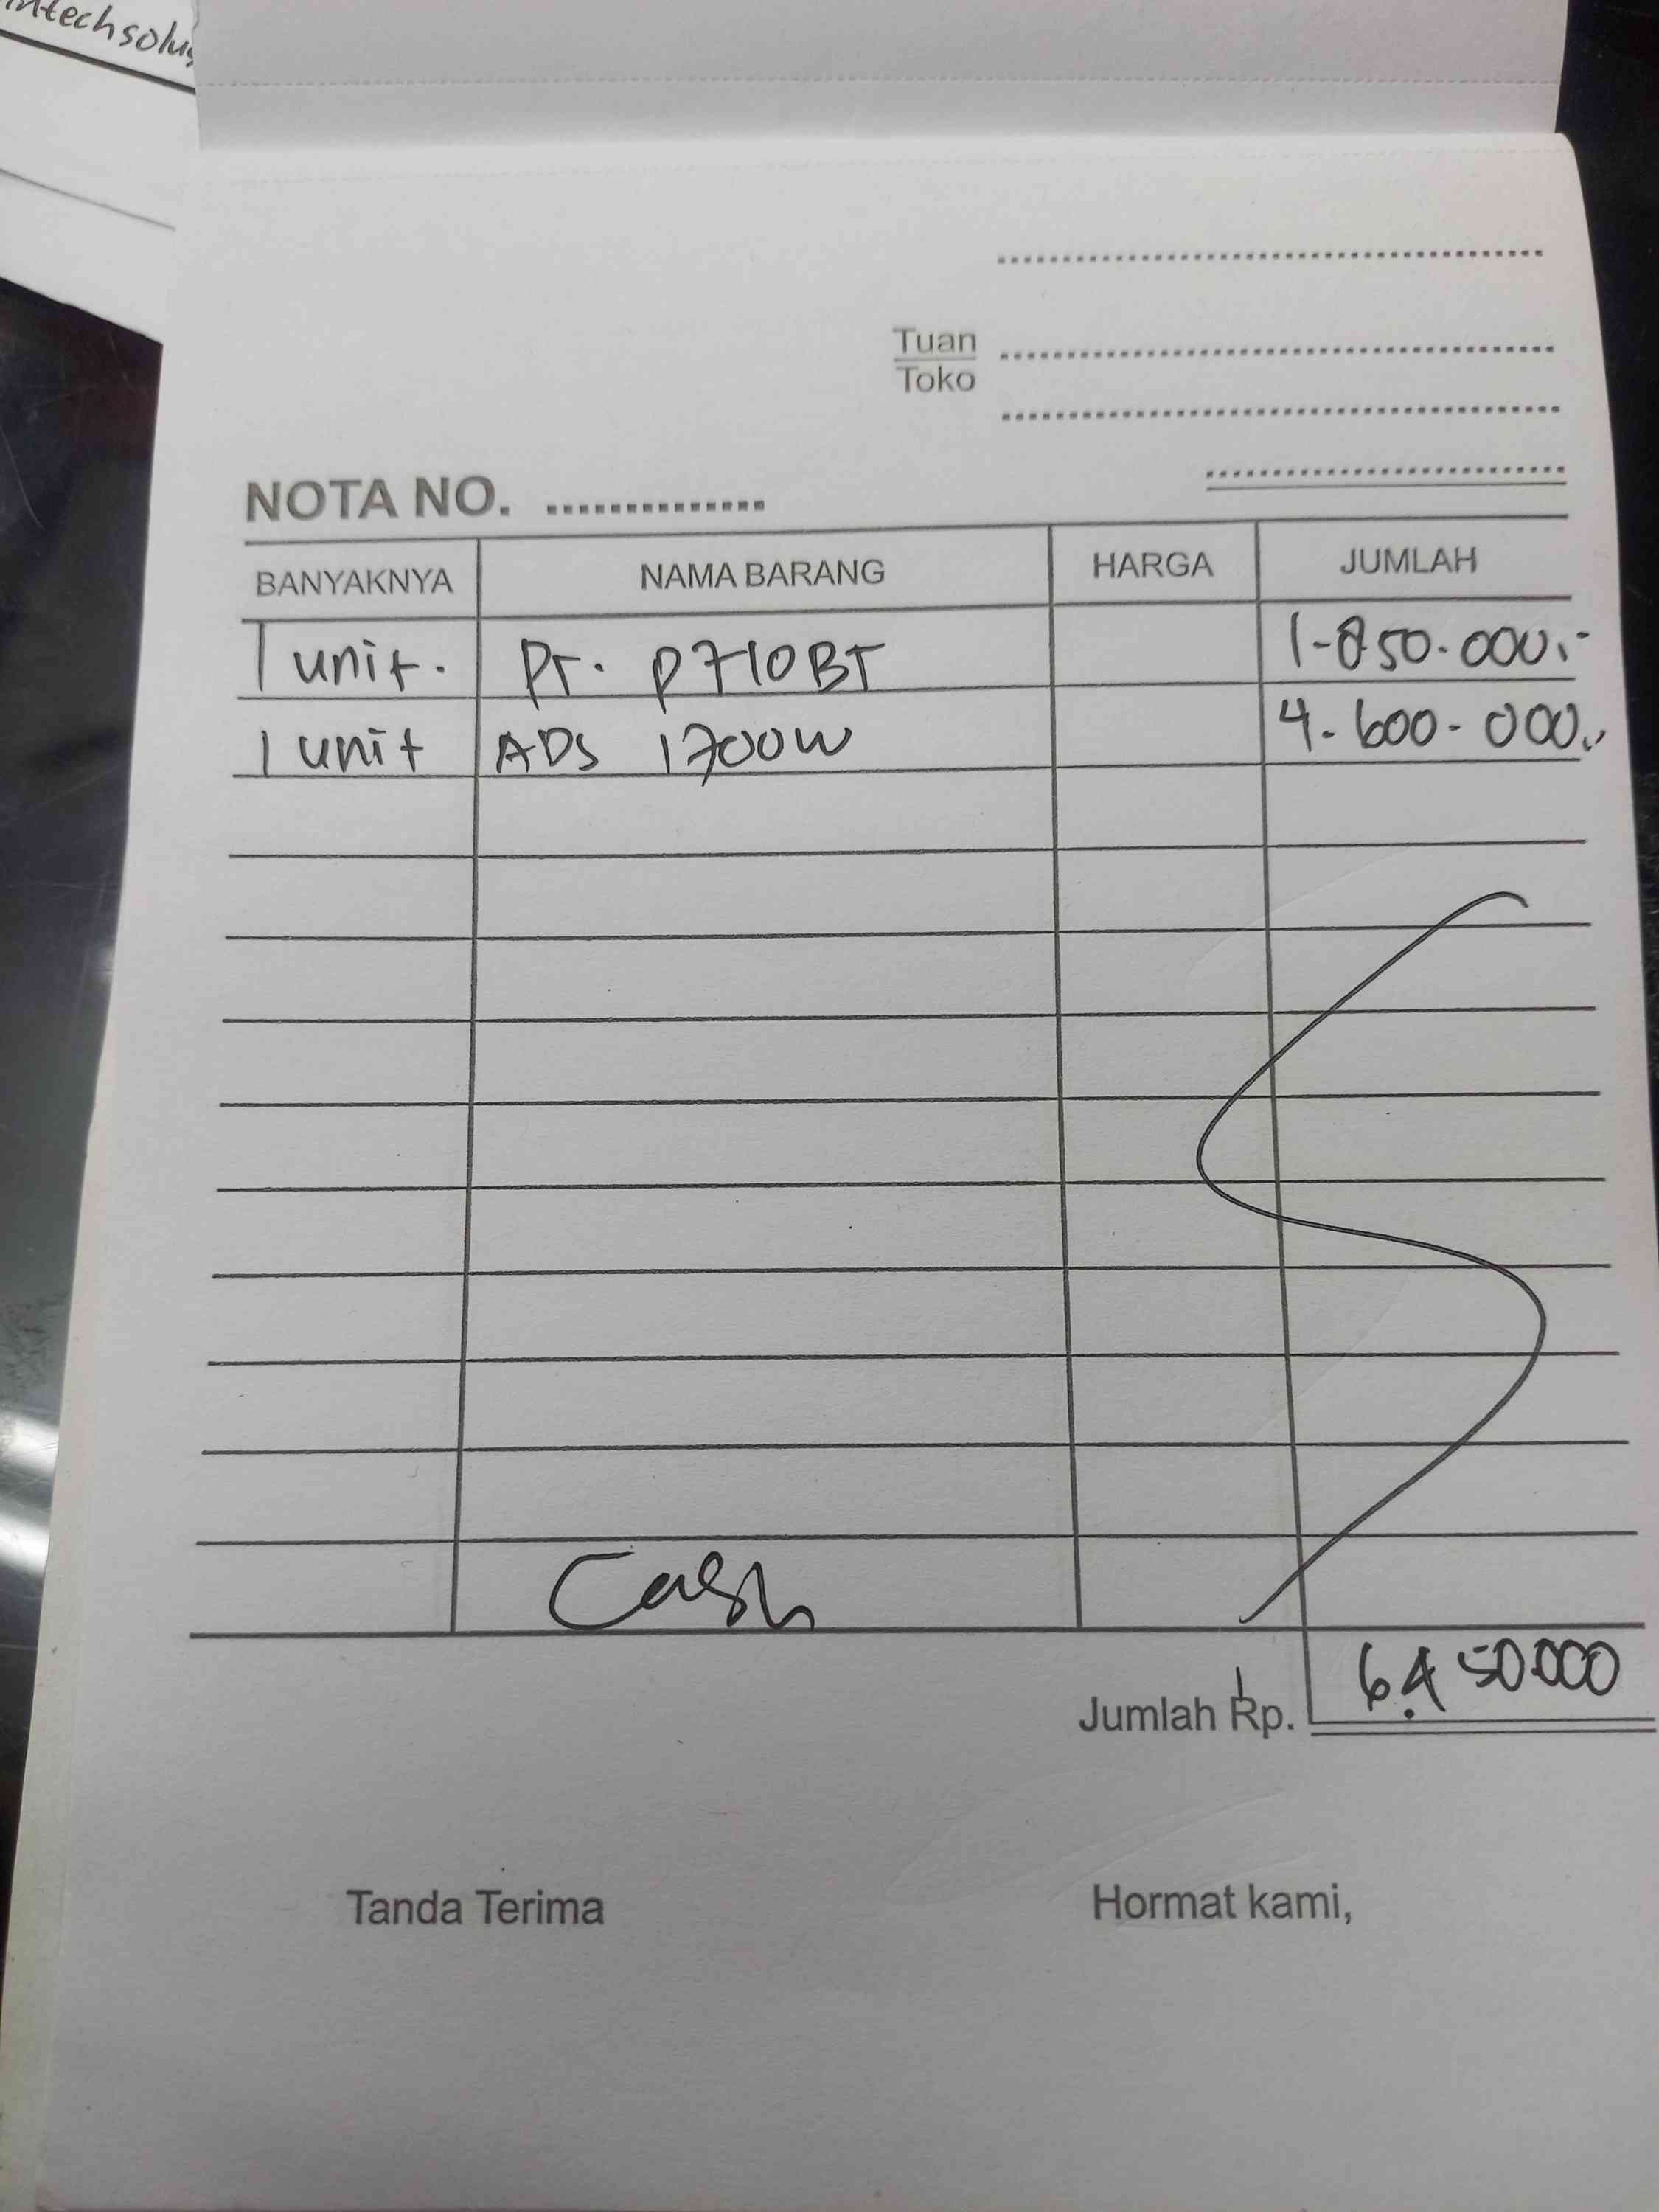 intechsolus
Tuan
Toko
NOTA NO.
BANYAKNYA NAMA BARANG HARGA JUMLAH
1 unit. PT. P710BT 1-850.000,-
1 unit ADS 1700W 4.600-000,-
Cash
Jumlah Rp. 6.450.000
Tanda Terima Hormat kami,